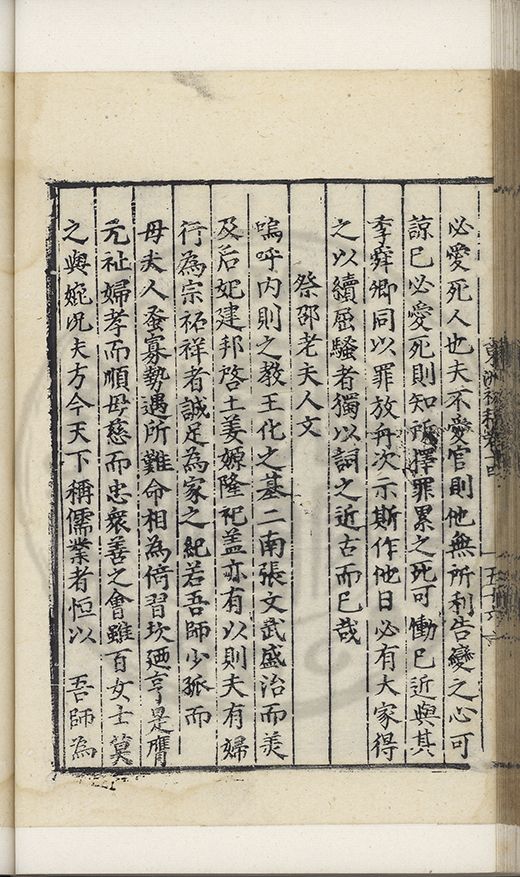 必愛死人也夫不愛官則他無所利告變之心可
諒已必愛死則知所擇罪累之死可慟已近與其
季舜卿同以罪放舟次示斯作他日必有大家得
之以續屈騷者獨以詞之近古而已哉
祭邵老夫人文
嗚呼内則之教王化之基二南張文武盛治而羑
及后妃建邦啓土姜嫄隆祀盖亦有以則夫有婦
行為宗祏祥者誠足為家之紀若吾師少孤而
母夫人蚤寡勢遇所難命相為倚習坎廼亨是膺
元祉婦孝而順母慈而忠衆善之會雖百女士莫
之與媲况夫方今天下稱儒業者恒以 吾師為